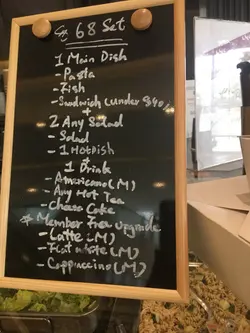 68 Set
1 Main Dish
- Pasta
- Fish
- Sandwich (under $90)
+
2 Any Salad
- Salad
- 1 Hot Dish
1 Drink
- Americano (M)
- Any Hot Tea
- Cheese Cake
* Member Free upgrade
- Latte (M)
- Flat white (M)
- Cappuccino (M)